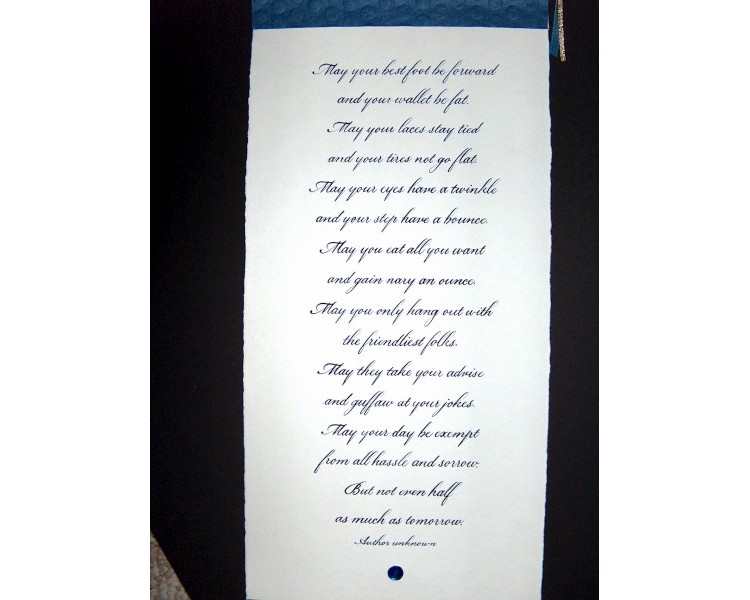 May your best foot be forward
and your wallet be fat.
May your laces stay tied
and your tires not go flat.
May your eyes have a twinkle
and your step have a bounce.
May you eat all you want
and gain nary an ounce.
May you only hang out with
the friendliest folks.
May they take your advise
and guffaw at your jokes.
May your day be exempt
from all hassle and sorrow.
But not even half
as much as tomorrow.
Author unknown